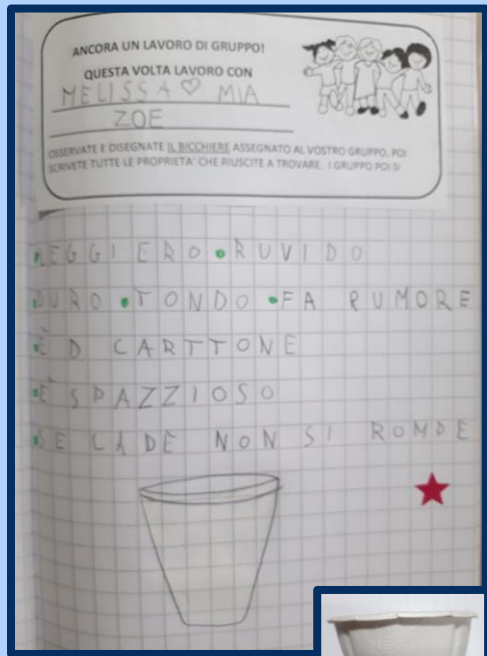 ANCORA UN LAVORO DI GRUPPO!
QUESTA VOLTA LAVORO CON
MELISSA ♡ MIA
ZOE
OSSERVATE E DISEGNATE IL BICCHIERE ASSEGNATO AL VOSTRO GRUPPO, POI
SCRIVETE TUTTE LE PROPRIETA' CHE RIUSCITE A TROVARE. I GRUPPO POI SI
LEGGIERO • RUVIDO
DURO • TONDO • FA RUMORE
• È D CARTTONE
• È SPAZZIOSO
• SE CADE NON SI ROMPE